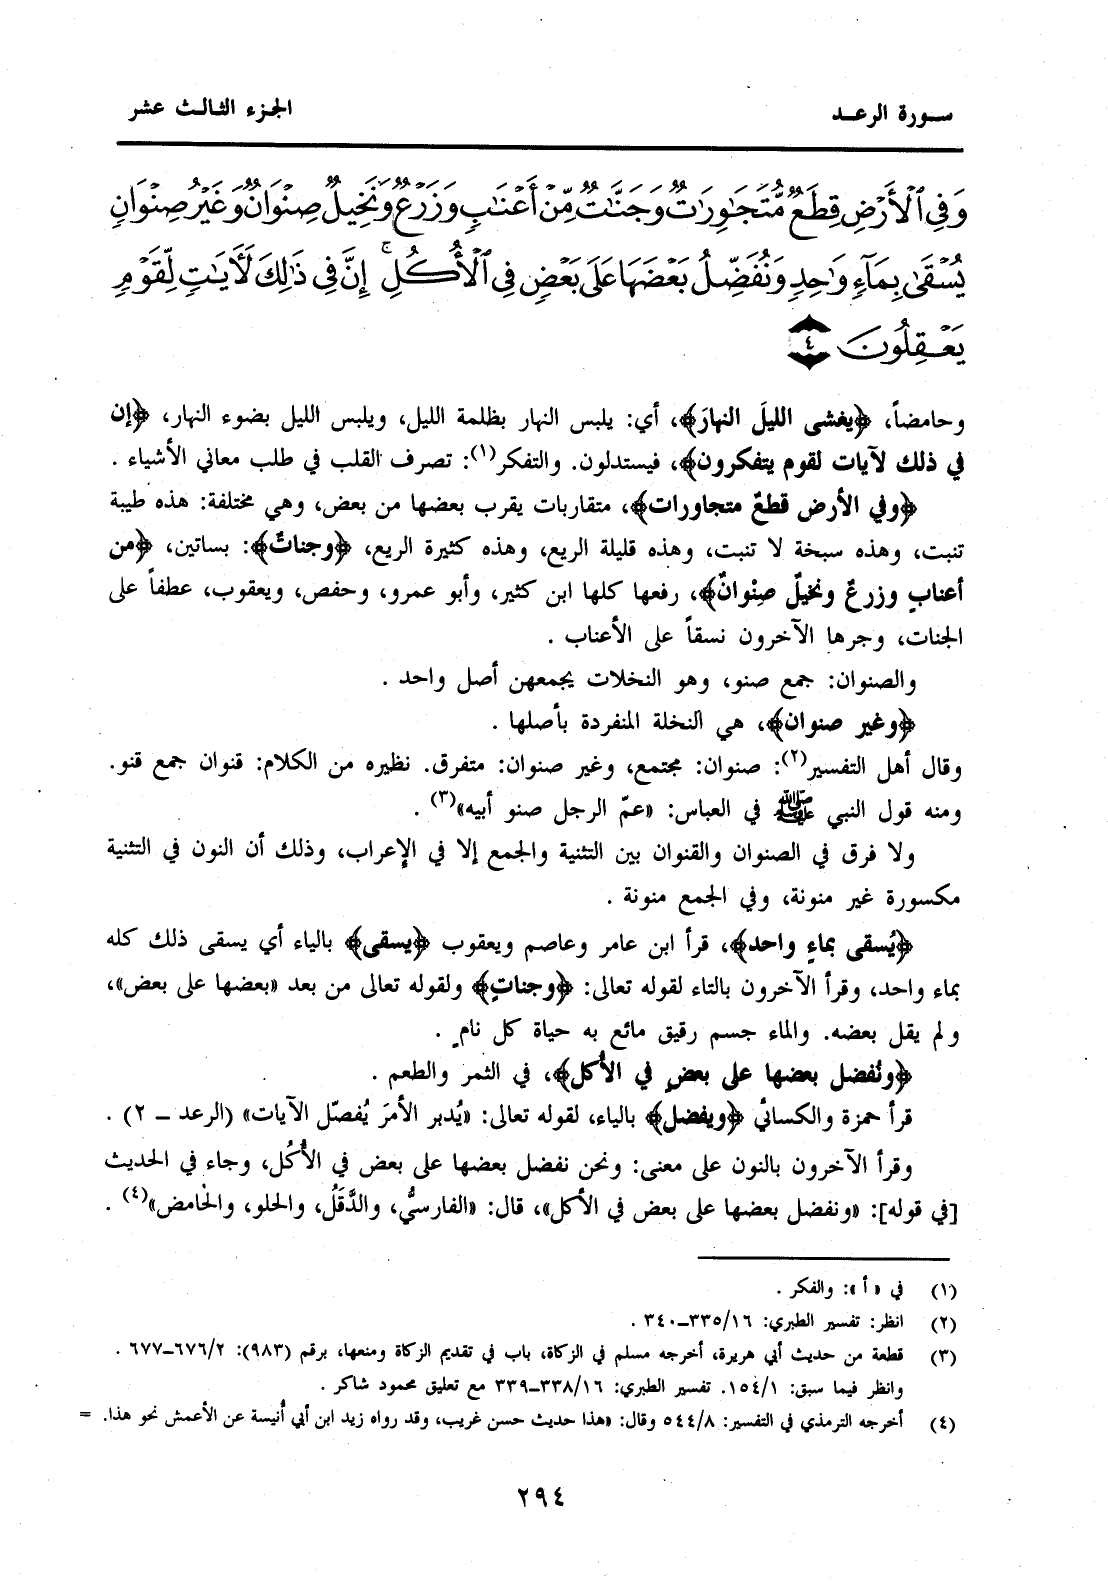 سورة الرعد
الجزء الثالث عشر
وَفِي ٱلْأَرْضِ قِطَعٌ مُّتَجَٰوِرَٰتٌ وَجَنَّٰتٌ مِّنْ أَعْنَٰبٍ وَزَرْعٌ وَنَخِيلٌ صِنْوَانٌ وَغَيْرُ صِنْوَانٍ
يُسْقَىٰ بِمَآءٍ وَٰحِدٍ وَنُفَضِّلُ بَعْضَهَا عَلَىٰ بَعْضٍ فِي ٱلْأُكُلِ ۚ إِنَّ فِي ذَٰلِكَ لَأَيَٰتٍ لِّقَوْمٍ
يَعْقِلُونَ ٤
وحامضاً، ﴿يغشى الليلَ النهارَ﴾، أي: يلبس النهار بظلمة الليل، ويلبس الليل بضوء النهار، ﴿إن
في ذلك لآيات لقوم يتفكرون﴾، فيستدلون. والتفكر(١): تصرف القلب في طلب معاني الأشياء .
﴿وفي الأرض قطعٌ متجاورات﴾، متقاربات يقرب بعضها من بعض، وهي مختلفة: هذه طيبة
تنبت، وهذه سبخة لا تنبت، وهذه قليلة الريع، وهذه كثيرة الريع، ﴿وجناتٌ﴾: بساتين، ﴿من
أعنابٍ وزرعٌ ونخيلٌ صِنْوانٌ﴾، رفعها كلها ابن كثير، وأبو عمرو، وحفص، ويعقوب، عطفاً على
الجنات، وجرها الآخرون نسقاً على الأعناب .
والصنوان: جمع صنو، وهو النخلات يجمعهن أصل واحد .
﴿وغير صنوان﴾، هي النخلة المنفردة بأصلها .
وقال أهل التفسير(٢): صنوان: مجتمع، وغير صنوان: متفرق. نظيره من الكلام: قنوان جمع قنو.
ومنه قول النبي ﷺ في العباس: «عمّ الرجل صنو أبيه»(٣) .
ولا فرق في الصنوان والقنوان بين التثنية والجمع إلا في الإعراب، وذلك أن النون في التثنية
مكسورة غير منونة، وفي الجمع منونة .
﴿يُسقى بماءٍ واحد﴾، قرأ ابن عامر وعاصم ويعقوب ﴿يسقى﴾ بالياء أي يسقى ذلك كله
بماء واحد، وقرأ الآخرون بالتاء لقوله تعالى: ﴿وجناتٍ﴾ ولقوله تعالى من بعد «بعضها على بعض»،
ولم يقل بعضه. والماء جسم رقيق مائع به حياة كل نامٍ .
﴿ونُفضل بعضها على بعضٍ في الأُكل﴾، في الثمر والطعم .
قرأ حمزة والكسائي ﴿ويفضل﴾ بالياء، لقوله تعالى: «يُدبر الأمرَ يُفصّل الآيات» (الرعد – ٢) .
وقرأ الآخرون بالنون على معنى: ونحن نفضل بعضها على بعض في الأُكُل، وجاء في الحديث
[في قوله]: «ونفضل بعضها على بعض في الأكل»، قال: «الفارسيُّ، والدَّقَلُ، والحلو، والحامض»(٤) .
(١) في «أ»: والفكر .
(٢) انظر: تفسير الطبري: ١٦/٣٣٥–٣٤٠ .
(٣) قطعة من حديث أبي هريرة، أخرجه مسلم في الزكاة، باب في تقديم الزكاة ومنعها، برقم (٩٨٣): ٢/٦٧٦–٦٧٧ .
وانظر فيما سبق: ١/١٥٤. تفسير الطبري: ١٦/٣٣٨–٣٣٩ مع تعليق محمود شاكر .
(٤) أخرجه الترمذي في التفسير: ٨/٥٤٤ وقال: «هذا حديث حسن غريب، وقد رواه زيد ابن أبي أنيسة عن الأعمش نحو هذا. =
٢٩٤